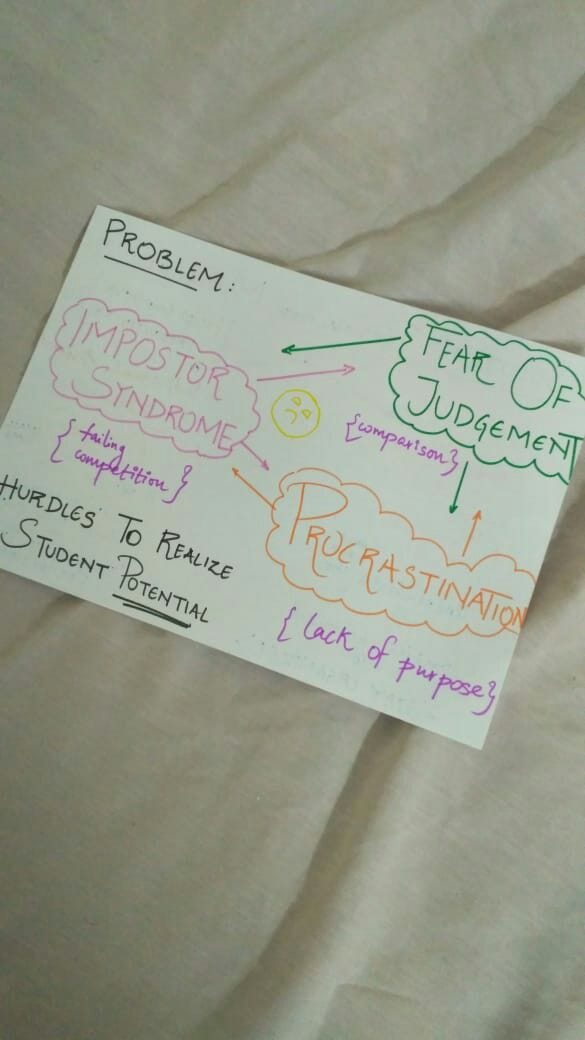 PROBLEM:
IMPOSTOR
SYNDROME
{ failing
competition }
FEAR OF
JUDGEMENT
{comparison}
PROCRASTINATION
{ lack of purpose}
HURDLES TO REALIZE
STUDENT POTENTIAL